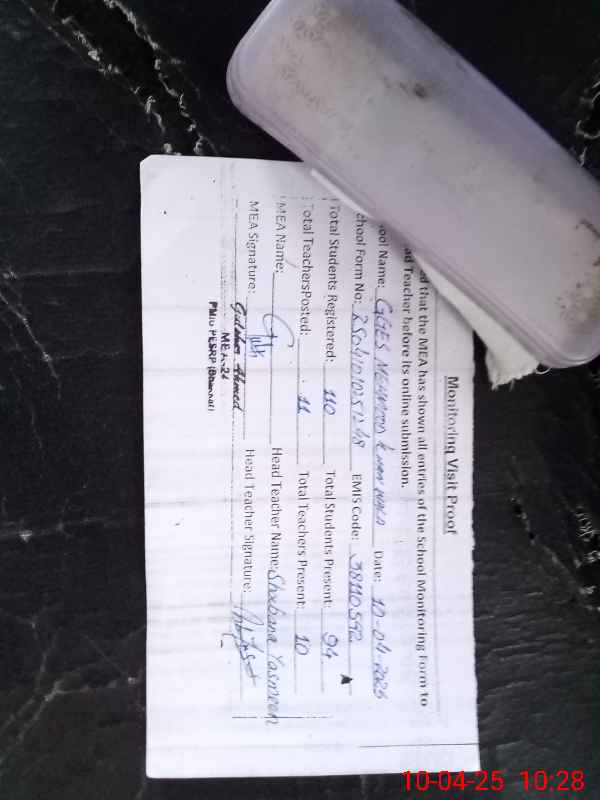 Monitoring Visit Proof
ed that the MEA has shown all entries of the School Monitoring Form to
ad Teacher before its online submission.
ool Name: GGES MEHMOOD K Date: 10-04-2025
chool Form No: EMIS Code: 38110592
Total Students Registered: 110 Total Students Present: 94
Total TeachersPosted: 11 Total Teachers Present: 10
MEA Name: Head Teacher Name: Shabana Yasmeen
MEA Signature: Head Teacher Signature:
Ahmed
MEA-24
10-04-25 10:28